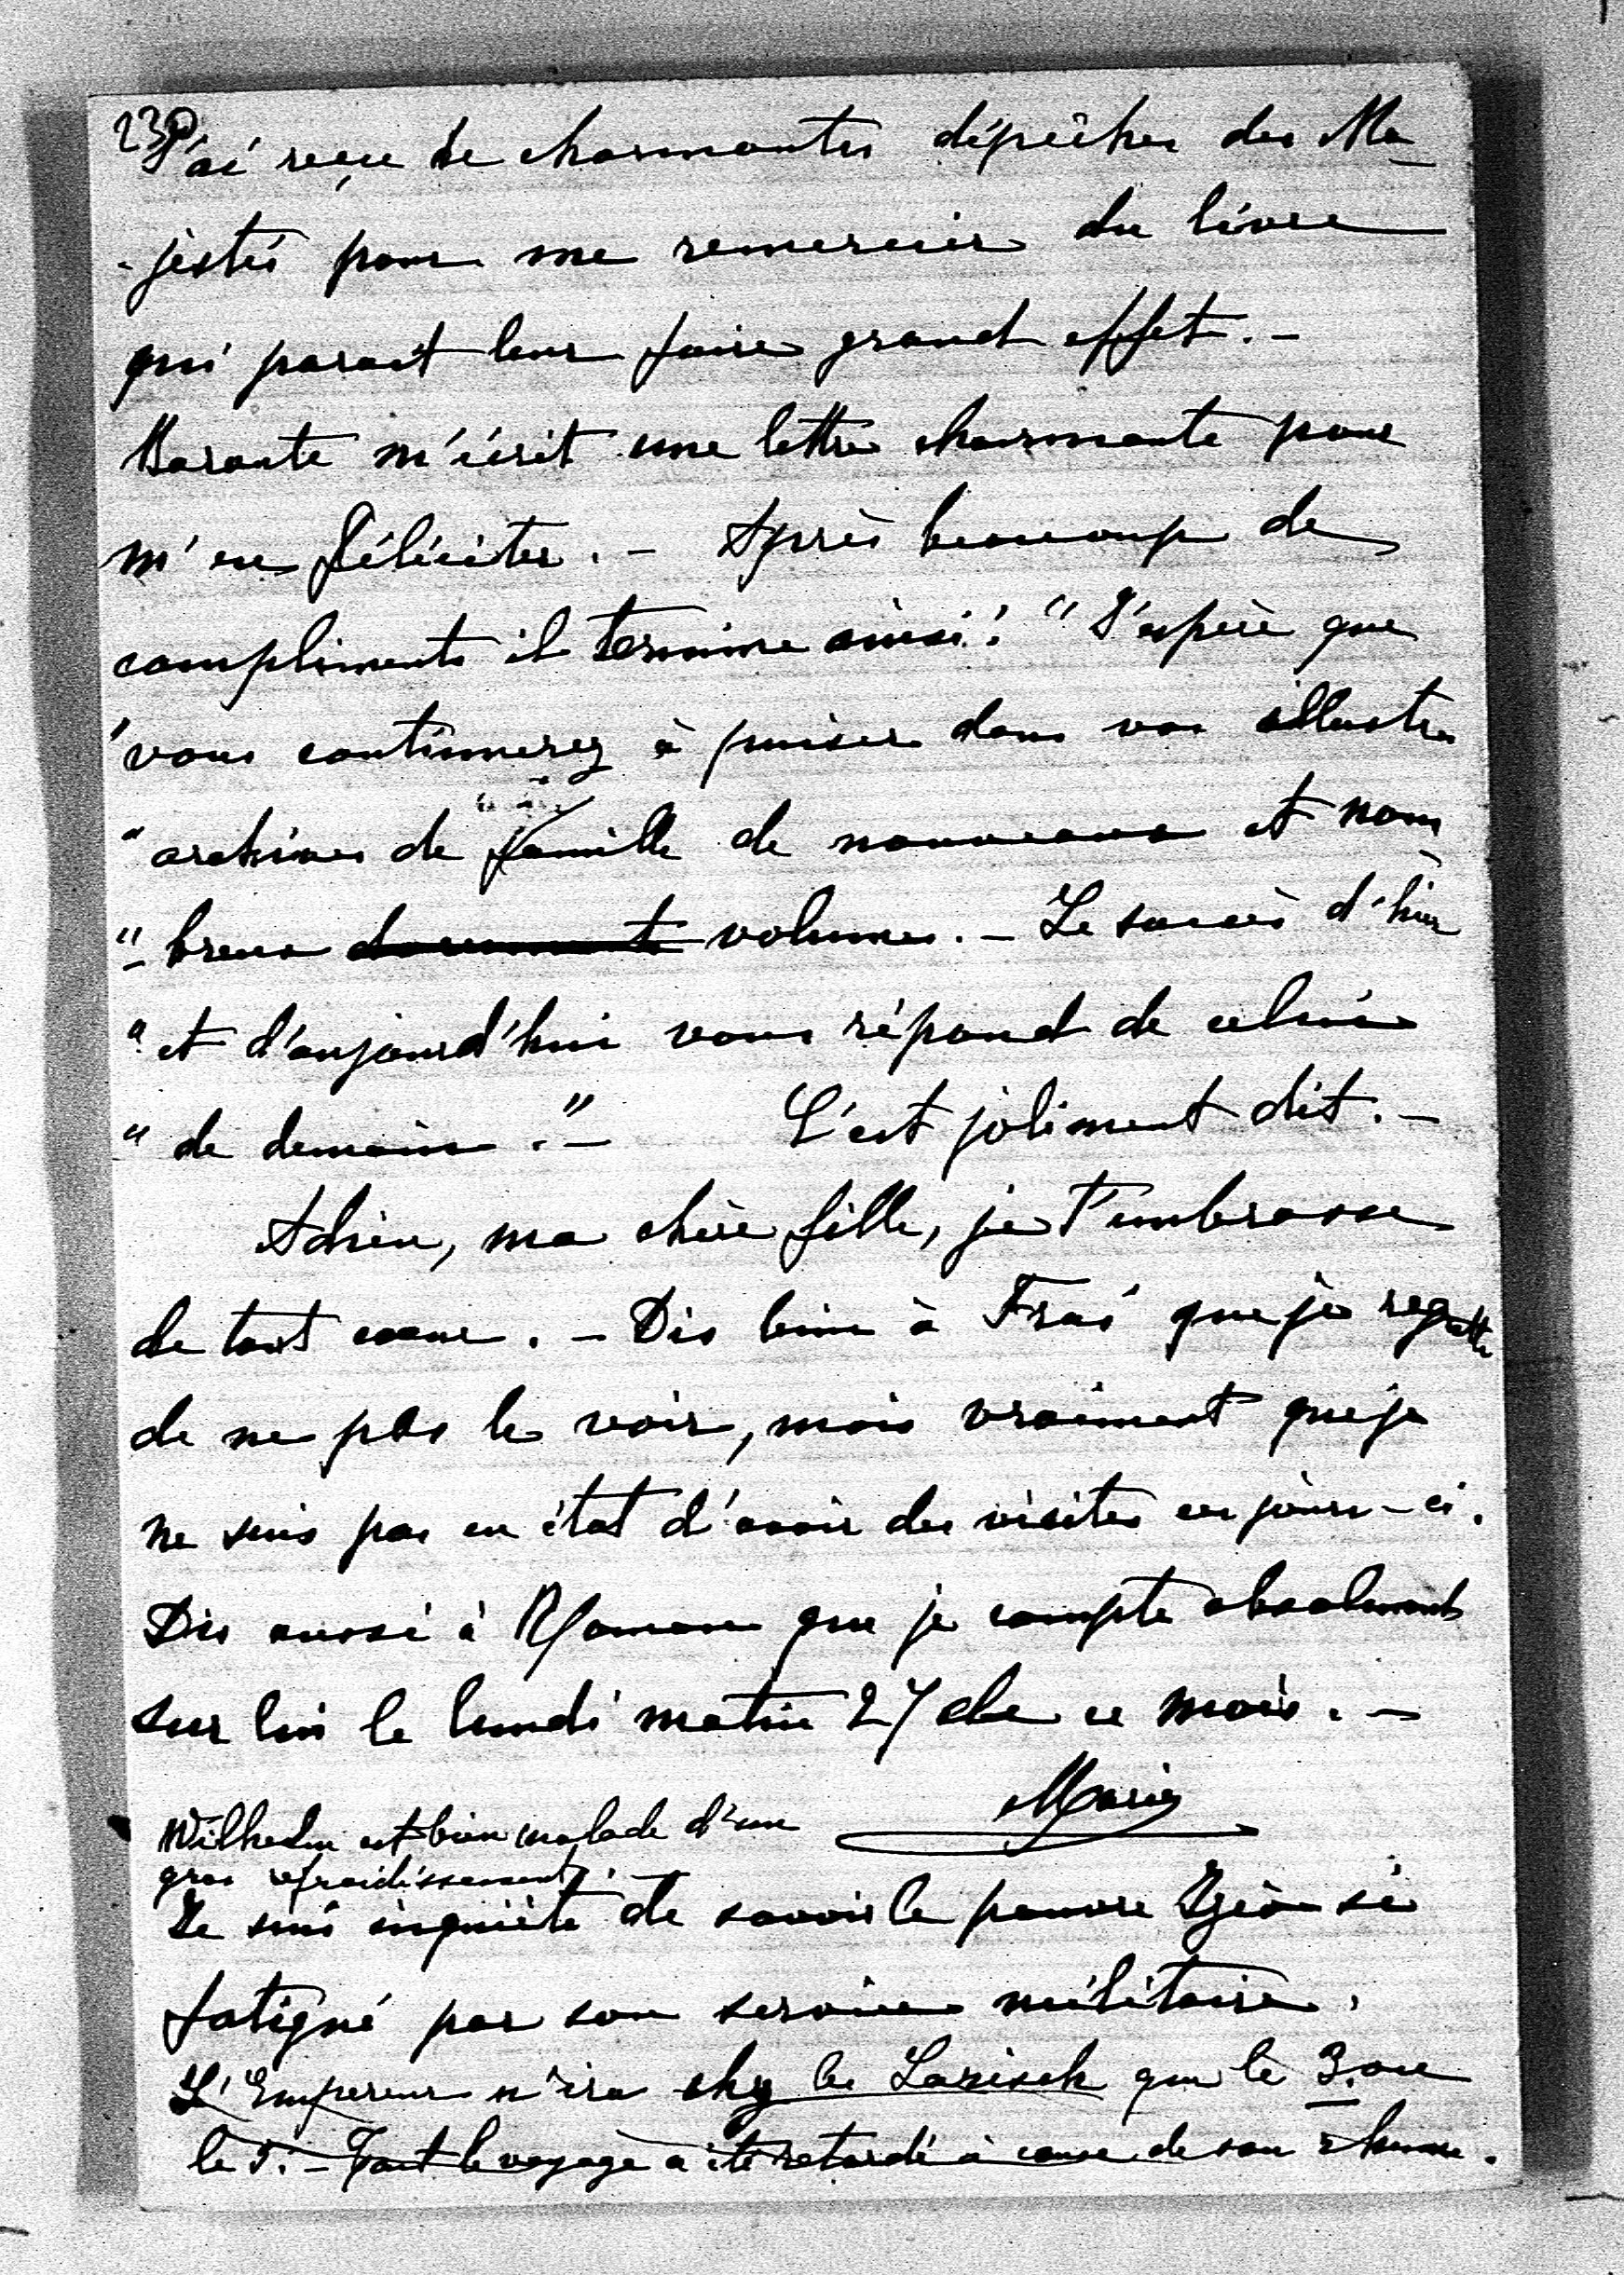 230
J'ai reçu de charmantes dépêches des Ma-
-jestés pour me remercier du livre
qui parait leur faire grand effet. -
Barante m'écrit une lettre charmante pour
m'en féliciter. - Après beaucoup de
compliments il termine ainsi: "J'espère que
"vous continuerez à puiser dans vos illustres
"archives de famille de nouveaux et nom-
"-breux documents volumes. - Le succès d'hier
"et d'aujourd'hui vous répond de celui
"de demain." - C'est joliment dit. -
Adieu, ma chère fille, je t'embrasse
de tout coeur. - Dis bien à que je regrette
de ne pas le voir, mais vraiment que je
ne suis pas en état d'avoir des visites ces jours-ci.
Dis aussi à que je compte absolument
sur lui le lundi matin 27 de ce mois. -
Marie
Wilhelm est bien malade d'un
gros refroidissement.
Je suis inquiète de savoir le pauvre si
fatigué par son service militaire.
L'Empereur n'ira chez les Larisch que le 3. ou
le 5. - Tout le voyage a été retardé à cause de son rhume.